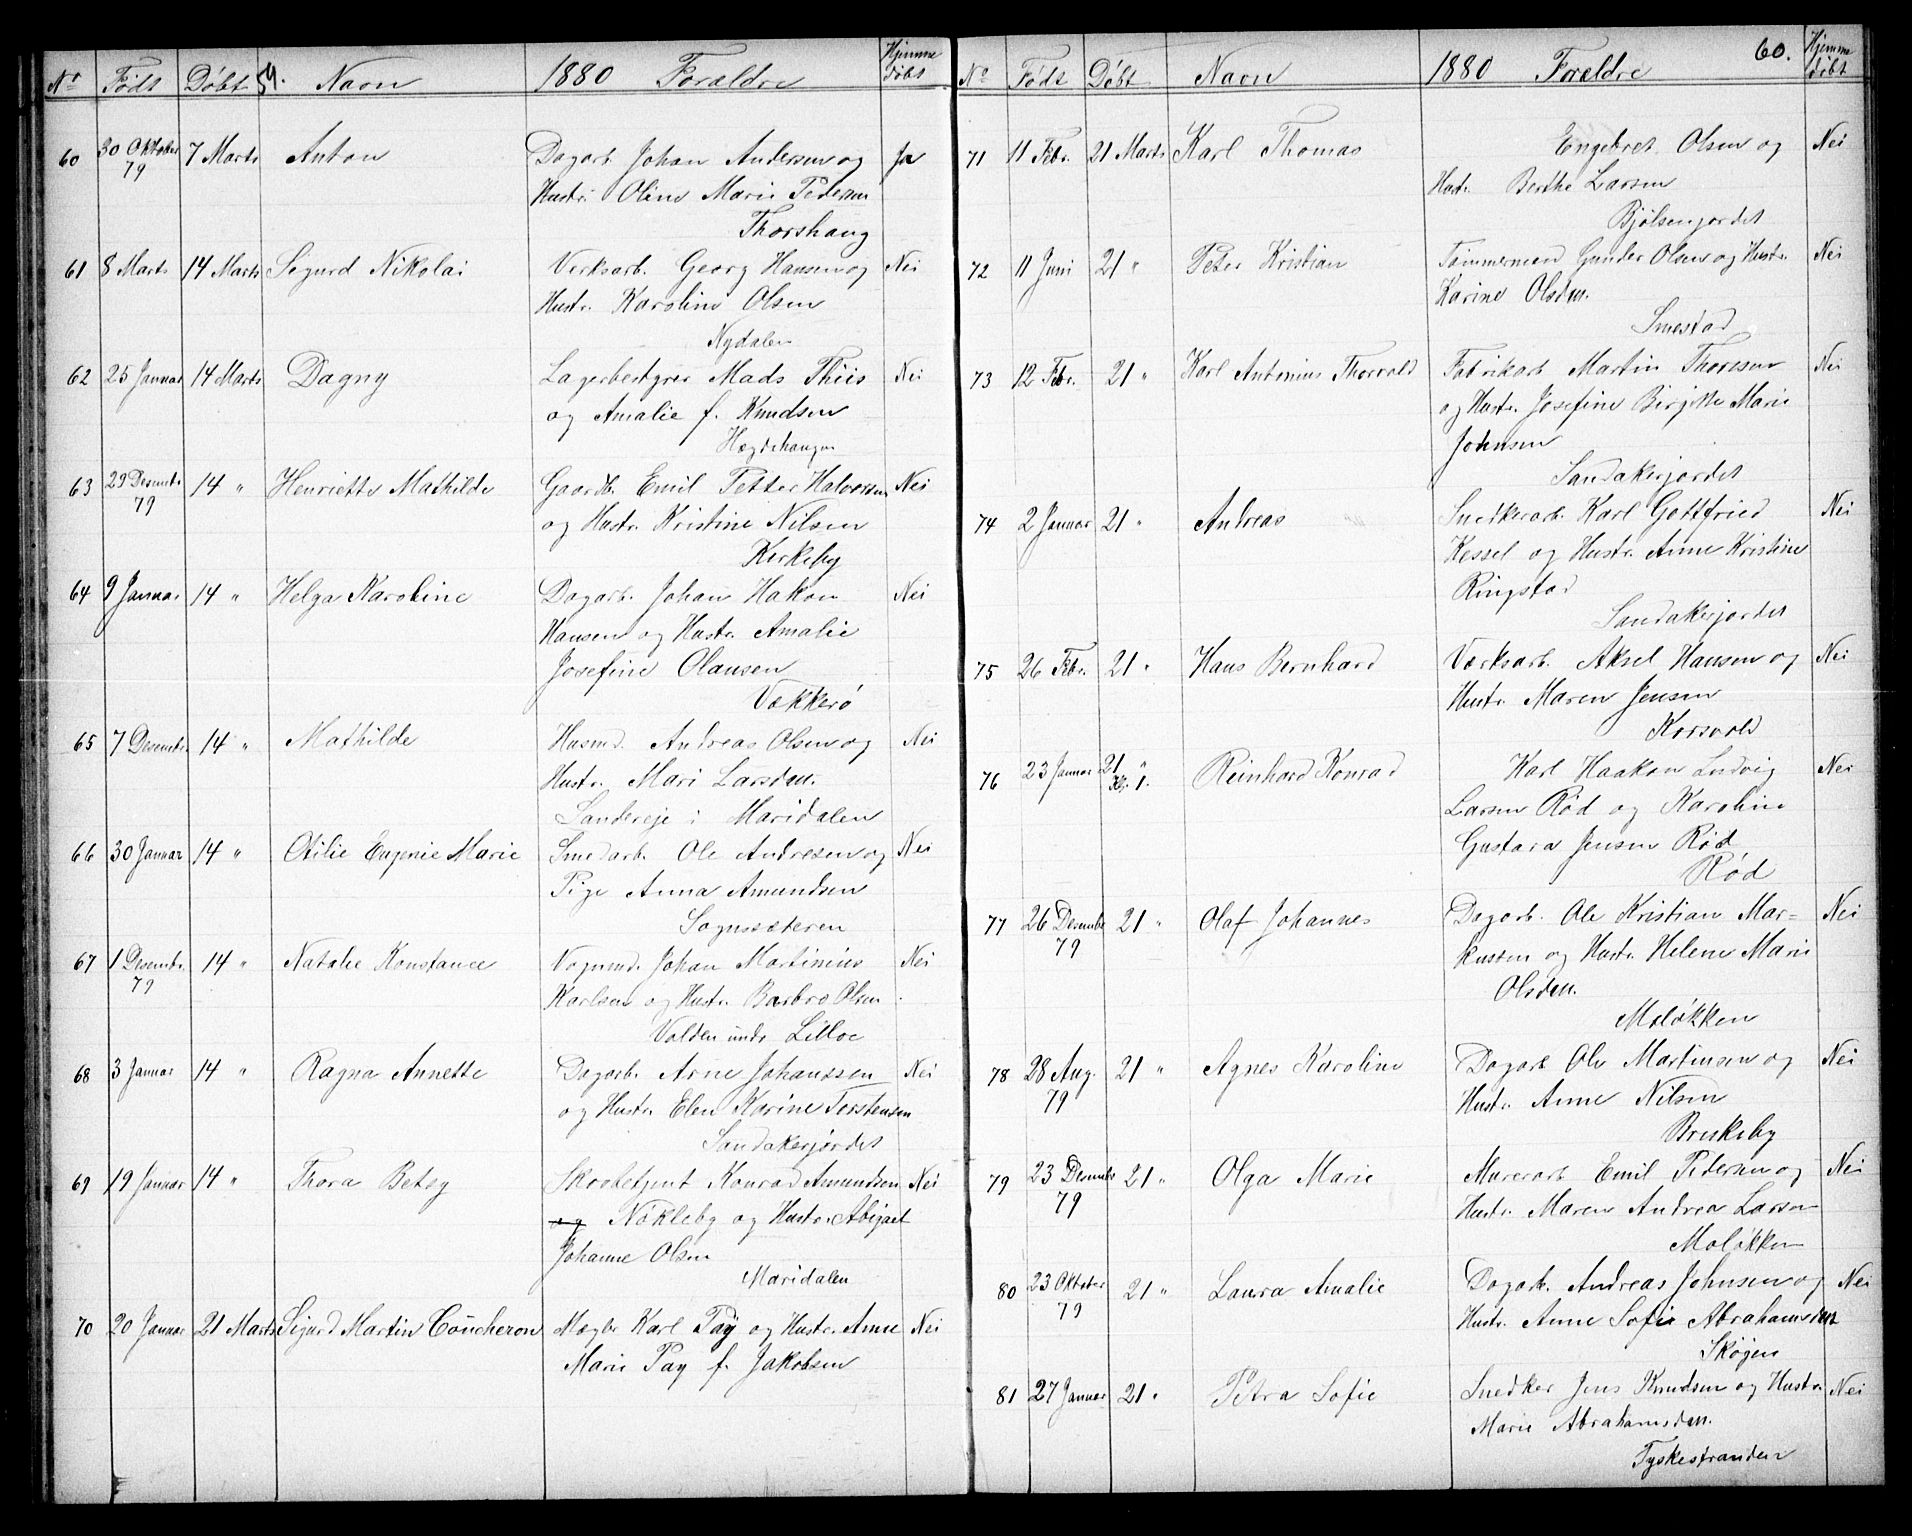 No Født Døbt 59. Navn 1880 Forældre Hjemmedøbt
60 30 Oktober 79 7 Marts Anton Dagarb. Johan Andersen og Ja
Hustr. Oline Marie Pedersen
Thorshaug
61 8 Marts 14 Marts Sigurd Nikolai Verksarb. Georg Hansen og Nei
Hustr. Karoline Olsen
Nydalen
62 25 Januar 14 Marts Dagny Lagerbestyrer Mads Thiis Nei
og Amalie f. Knudsen
Hægdehaugen
63 29 Desembr. 79 14 " Henriette Mathilde Gaardb. Emil Petter Halvorsen Nei
og Hustr. Kristine Nilsen
Kirkeby
64 9 Januar 14 " Helga Karoline Dagarb. Johan Hakon Nei
Hansen og Hustr. Amalie
Josefine Olausen
Vækkerø
65 7 Desembr. 14 " Mathilde Husmd. Andreas Olsen og Nei
Hustr. Mari Larsdtr.
Sandereje i Maridalen
66 30 Januar 14 " Otilie Eugenie Marie Smedarb. Ole Andresen og Nei
Pige Anna Amundsen
Sognssæteren
67 1 Desembr. 79 14 " Natalie Konstance Vognmd. Johan Martinius Nei
Karlsen og Hustr. Barbro Olsen
Volden undr Lilloe
68 3 Januar 14 " Ragna Annette Dagarb. Arne Johanssen Nei
og Hustr. Elen Karine Torstensen
Sandakerjordet
69 19 Januar 14 " Thora Betsy Skovbetjent Konrad Amundsen Nei
og Nökleby og Hustr. Abigael
Johanne Olsen
Maridalen
70 20 Januar 21 Marts Sigurd Martin Coucheron Mægler Karl Pay og Hustr. Anne Nei
Marie Pay f. Jakobsen
No Født Døbt Navn 1880 Forældre 60. Hjemmedøbt
71 11 Febr. 21 Marts Karl Thomas Engebret Olsen og Nei
Hustr. Berthe Larsen
Bjølsenjordet
72 11 Juni 21 " Peter Kristian Tømmermand Gunder Olsen og Hustr. Nei
Karine Olsdtr.
Smestad
73 12 Febr. 21 " Karl Antonius Thorvald Fabrikarb. Martin Thoresen Nei
og Hustr. Josefine Birgitte Marie
Johnsen
Sandakerjordet
74 2 Januar 21 " Andreas Snedkerarb. Karl Gottfried Nei
Kessel og Hustr. Anne Kristine
Ringstad
Sandakerjordet
75 26 Febr. 21 " Hans Bernhard Værksarb. Aksel Hansen og Nei
Hustr. Maren Jensen
Korsvold
76 23 Januar 21 " Kl. 1. Reinhard Konrad Karl Haakon Ludvig Nei
Larsen Rød og Karoline
Gustava Jensen Rød
Rød
77 26 Desembr 79 21 " Olaf Johannes Dagarb. Ole Kristian Mar= Nei
kussen og Hustr. Helene Marie
Olsdtr.
Moløkken
78 28 Aug. 79 21 " Agnes Karoline Dagarb. Ole Martinsen og Nei
Hustr. Anne Nilsen
Brekeby
79 23 Desembr 79 21 " Olga Marie Murerarb. Emil Pedersen og Nei
Hustr. Maren Andrea Larsen
Moløkken
80 23 Oktober 79 21 " Laura Amalie Dagarb. Andreas Johnsen og Nei
Hustr. Anne Sofie Abrahamsdtr
Skøyen
81 27 Januar 21 " Petra Sofie Snedker Jens Knudsen og Hustr. Nei
Marie Abrahamsdtr.
Tyskestranden